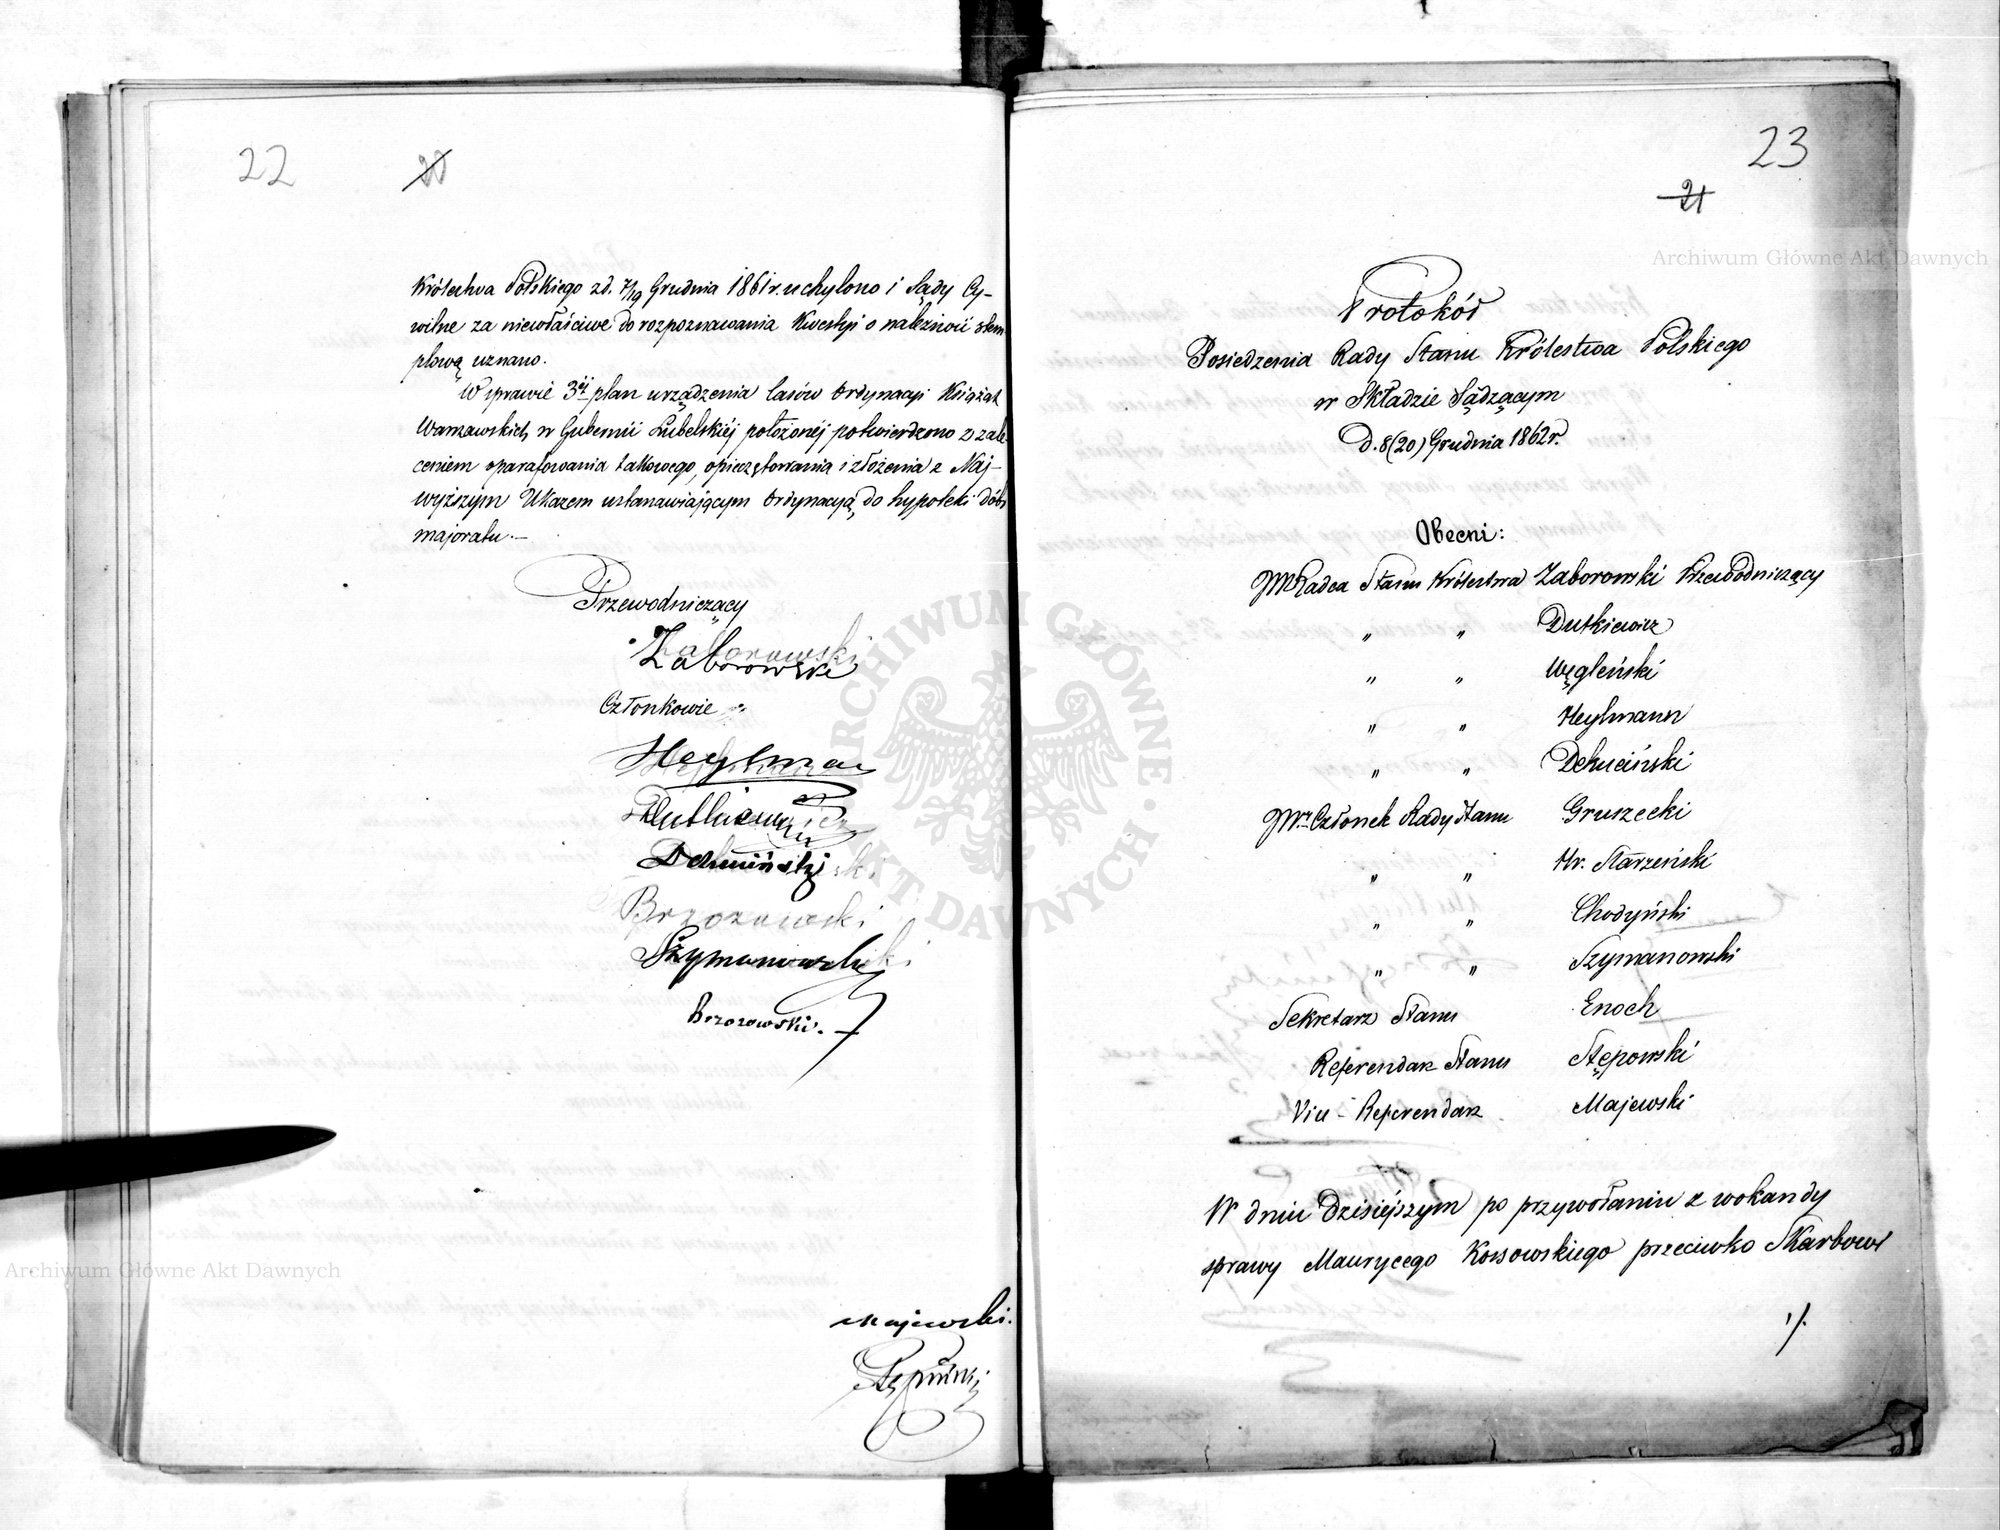 22
20
Królestwa Polskiego z d. 7/19 Grudnia 1861 r. uchylono i Sądy Cy-
wilne za niewłaściwe do rozpoznawania Kwestyi o należność stem
plową uznano.
W sprawie 3éj plan urządzenia lasów Ordynacyi Książąt
Warszawskich w Gubernii Lubelskiéj położonéj potwierdzono z zale
ceniem oparafowania takowego, opieczętowania i złożenia z Naj-
wyższym Ukazem ustanawiającym Ordynacyą, do hypoteki dóbr
majoratu.—
Przewodniczący
Zaborowski
Członkowie
Heylman
Dutkiewicz
Dekuciński
Brzozowski
Szymanowski
Brzozowski.
Majewski.
Stępowski
23
21
Protokół
Posiedzenia Rady Stanu Królestwa Polskiego
w Składzie Sądzącym
D. 8 (20) Grudnia 1862 r.
Obecni:
JW Radca Stanu Królestwa Zaborowski Przewodniczący
" " Dutkiewicz
" " Węgleński
" " Heylmann
" " Dekuciński
JWr Członek Rady Stanu Gruszecki
" " Hr. Starzeński
" " Chodyński
" " Szymanowski
Sekretarz Stanu Enoch
Referendarz Stanu Stępowski
Vice-Referendarz Majewski
W dniu dzisiéjszym po przywołaniu z wokandy
sprawy Maurycego Kossowskiego przeciwko Skarbowi
./.
Archiwum Główne Akt Dawnych
Archiwum Główne Akt Dawnych
ARCHIWUM GŁÓWNE AKT DAWNYCH